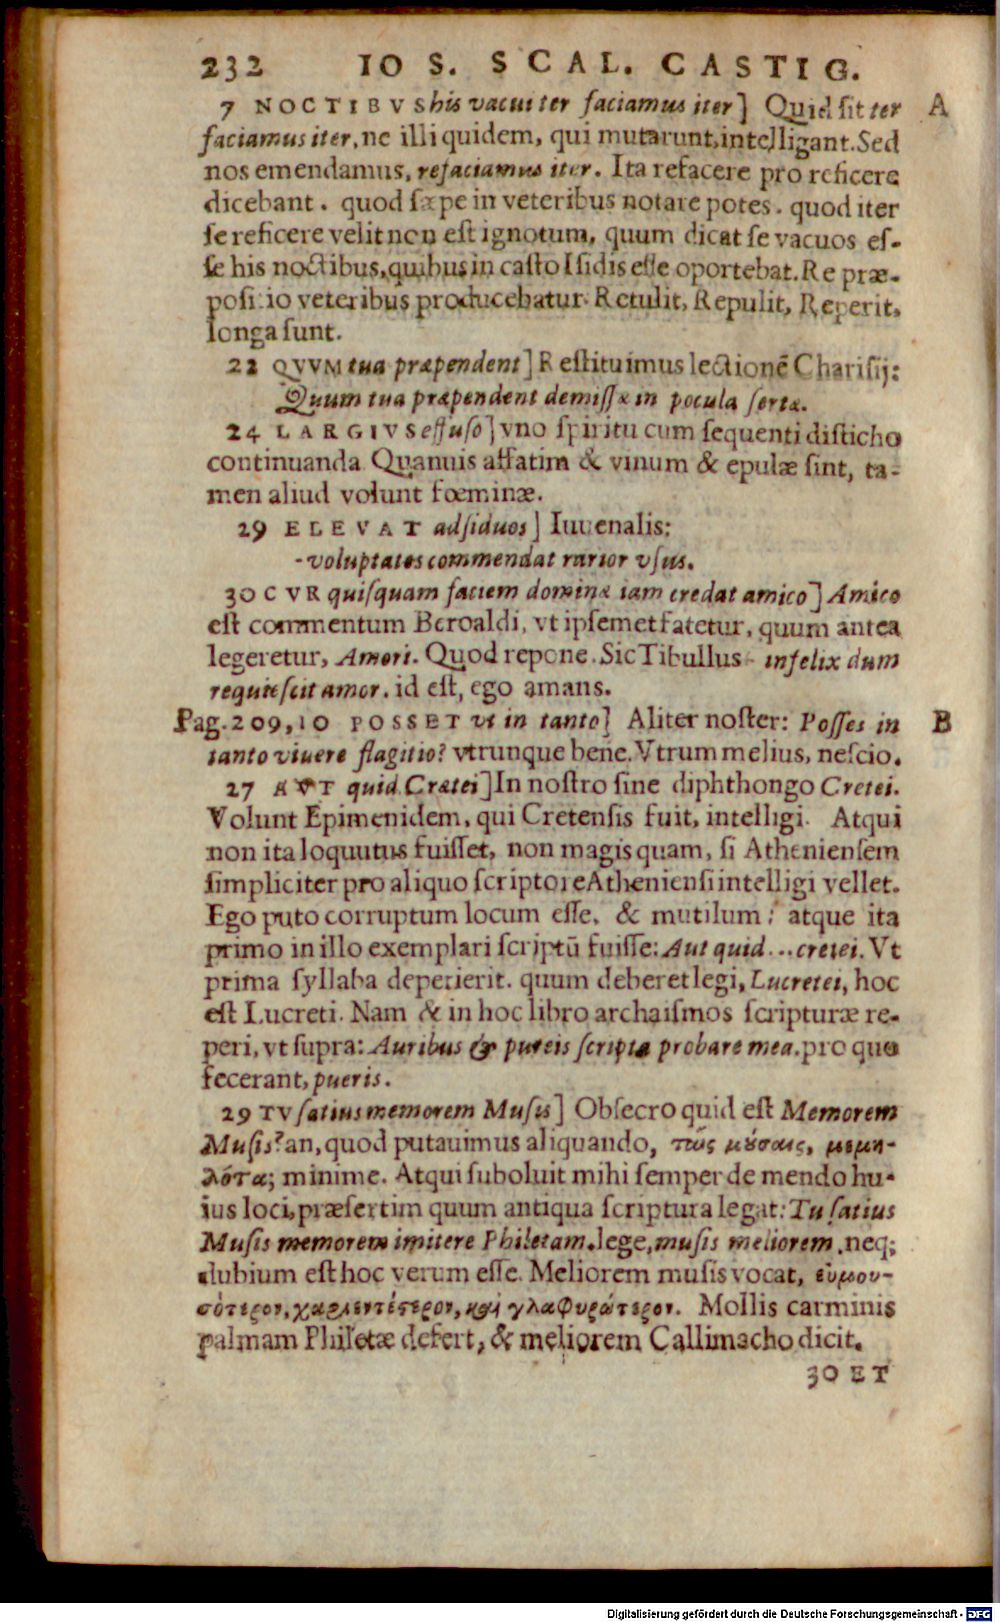 232 IOS. SCAL. CASTIG.
7 NOCTIBVS his vacui ter faciamus iter] Quid sit ter A
faciamus iter, ne illi quidem, qui mutarunt, intelligant. Sed
nos emendamus, refaciamus iter. Ita refacere pro reficere
dicebant. quod sæpe in veteribus notare potes. quod iter
se reficere velit non est ignotum, quum dicat se vacuos es-
se his noctibus, quibus in casto Isidis esse oportebat. Re præ-
positio veteribus producebatur. Retulit, Repulit, Reperit,
longa sunt.
22 QVVM tua præpendent] Restituimus lectionẽ Charisij:
Quum tua præpendent demissæ in pocula sertæ.
24 LARGIVS effuso] vno spiritu cum sequenti disticho
continuanda. Quanuis affatim & vinum & epulæ sint, ta-
men aliud volunt fœminæ.
29 ELEVAT adsiduos] Iuuenalis:
-voluptates commendat rarior vsus.
30 CVR quisquam faciem dominæ iam credat amico] Amico
est commentum Beroaldi, vt ipsemet fatetur, quum antea
legeretur, Amori. Quod repone. Sic Tibullus - infelix dum
requiescit amor. id est, ego amans.
Pag. 209, 10 POSSET vt in tanto] Aliter noster: Posses in B
tanto viuere flagitio? vtrunque bene. Vtrum melius, nescio.
27 AVT quid Crætei] In nostro sine diphthongo Cretei.
Volunt Epimenidem, qui Cretensis fuit, intelligi. Atqui
non ita loquutus fuisset, non magis quam, si Atheniensem
simpliciter pro aliquo scriptore Atheniensi intelligi vellet.
Ego puto corruptum locum esse, & mutilum: atque ita
primo in illo exemplari scriptũ fuisse: Aut quid...cretei. Vt
prima syllaba deperierit. quum deberet legi, Lucretei, hoc
est Lucreti. Nam & in hoc libro archaismos scripturæ re-
peri, vt supra: Auribus & pureis scripta probare mea. pro quo
fecerant, pueris.
29 TV satius memorem Musis] Obsecro quid est Memorem
Musis? an, quod putauimus aliquando, τῶς μούσαις, μεμη-
λότα; minime. Atqui suboluit mihi semper de mendo hu-
ius loci, præsertim quum antiqua scriptura legat: Tu satius
Musis memorem imitere Philetam. lege, musis meliorem. neq;
dubium est hoc verum esse. Meliorem musis vocat, εὐμου-
σότερον, χαριεντέστερον, καὶ γλαφυρώτερον. Mollis carminis
palmam Philetæ defert, & meliorem Callimacho dicit.
30 ET
Digitalisierung gefördert durch die Deutsche Forschungsgemeinschaft - DFG